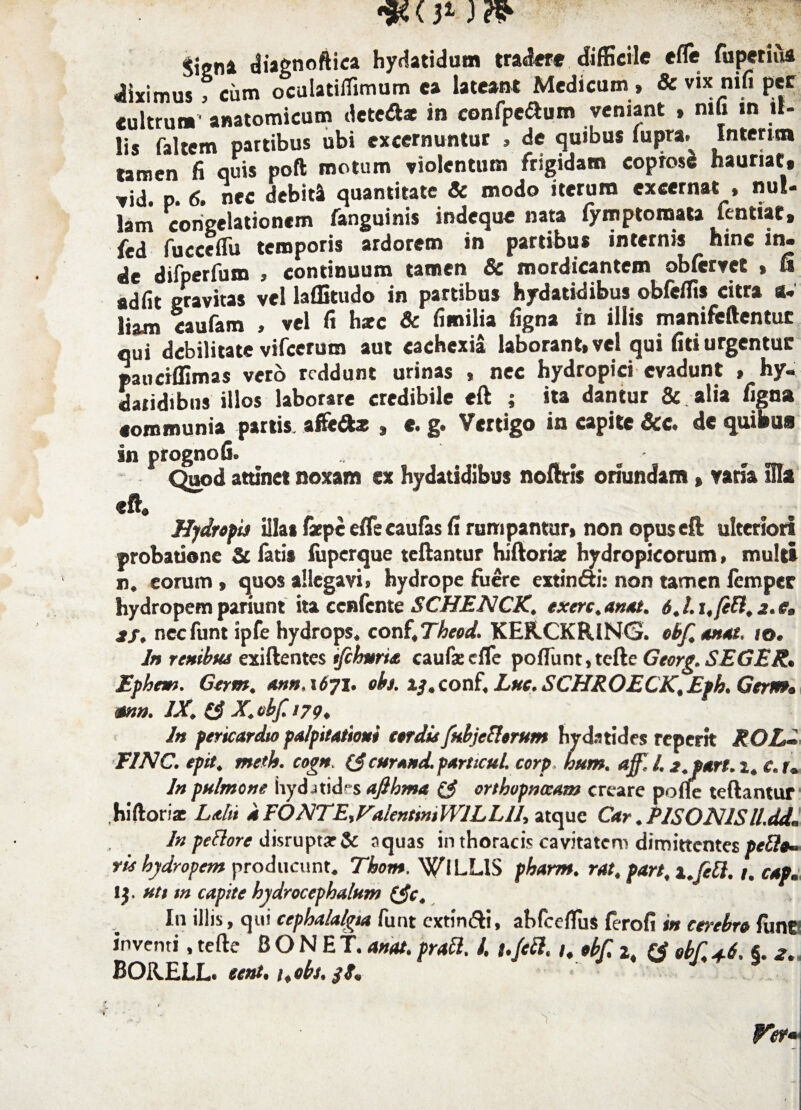 (31)
Signa diagnoſtica hydatidum tradere difficile eſſe ſuperius
diximus, cùm oculatiſſimum ea lateant Medicum, & vix niſi per
cultrum anatomicum detectæ in conſpectum veniant, niſi in il-
lis ſaltem partibus ubi excernuntur, de quibus ſupra. Interim
tamen ſi quis poſt motum violentum frigidam copiosè hauriat,
vid. p. 6. nec debitâ quantitate & modo iterum excernat, nul-
lam congelationem ſanguinis indeque nata ſymptomata ſentiat,
ſed ſucceſſu temporis ardorem in partibus internis hinc in-
de diſperſum, continuum tamen & mordicantem obſervet, ſi
adſit gravitas vel laſſitudo in partibus hydatidibus obſeſſis citra a-
liam cauſam, vel ſi hæc & ſimilia ſigna in illis manifeſtentur
qui debilitate viſcerum aut cachexiâ laborant, vel qui ſiti urgentur
pauciſſimas verò reddunt urinas, nec hydropici evadunt, hy-
datidibus illos laborare credibile eſt; ita dantur & alia ſigna
communia partis affectæ, e. g. Vertigo in capite &c. de quibus
in prognoſi.
Quod attinet noxam ex hydatidibus noſtris oriundam, varia illa
eſt.
Hydropis illas ſæpè eſſe cauſas ſi rumpantur, non opus eſt ulteriori
probatione & ſatis ſuperque teſtantur hiſtoriæ hydropicorum, multi
n. eorum, quos allegavi, hydrope fuêre extincti: non tamen ſemper
hydropem pariunt ita cenſente SCHENCK. exerc. anat. 6. l. 1. ſect. 2. c.
25. nec ſunt ipſe hydrops. conf. Theod. KERCKRING. obſ. anat. 10.
In renibus exiſtentes iſchuriæ cauſæ eſſe poſſunt, teſte Georg. SEGER.
Ephem. Germ. ann. 1671. obs. 23. conf. Luc. SCHROECK. Eph. Germ.
ann. IX. & X. obſ. 179.
In pericardio palpitationi cordis ſubjectorum hydatides reperit ROL-
FINC. epit. meth. cogn. & curand. particul. corp. hum. aff. l. 2. part. 2. c. 1.
In pulmone hydatides aſthma & orthopnœam creare poſſe teſtantur
hiſtoriæ Lælii à FONTE, Valentini WILLII, atque Car. PISONIS ll. dd.
In pectore disruptæ & aquas in thoracis cavitatem dimittentes pecto-
ris hydropem producunt. Thom. WILLIS pharm. rat. part. 2. ſect. 1. cap.
13. uti in capite hydrocephalum &c.
In illis, qui cephalalgia ſunt extincti, abſceſſus ſeroſi in cerebro ſunt
inventi, teſte BONET. anat. pract. l. 1. ſect. 1. obſ. 2. & obſ. 46. §. 2.
BORELL. cent. 1. obs. 38.
Ver-